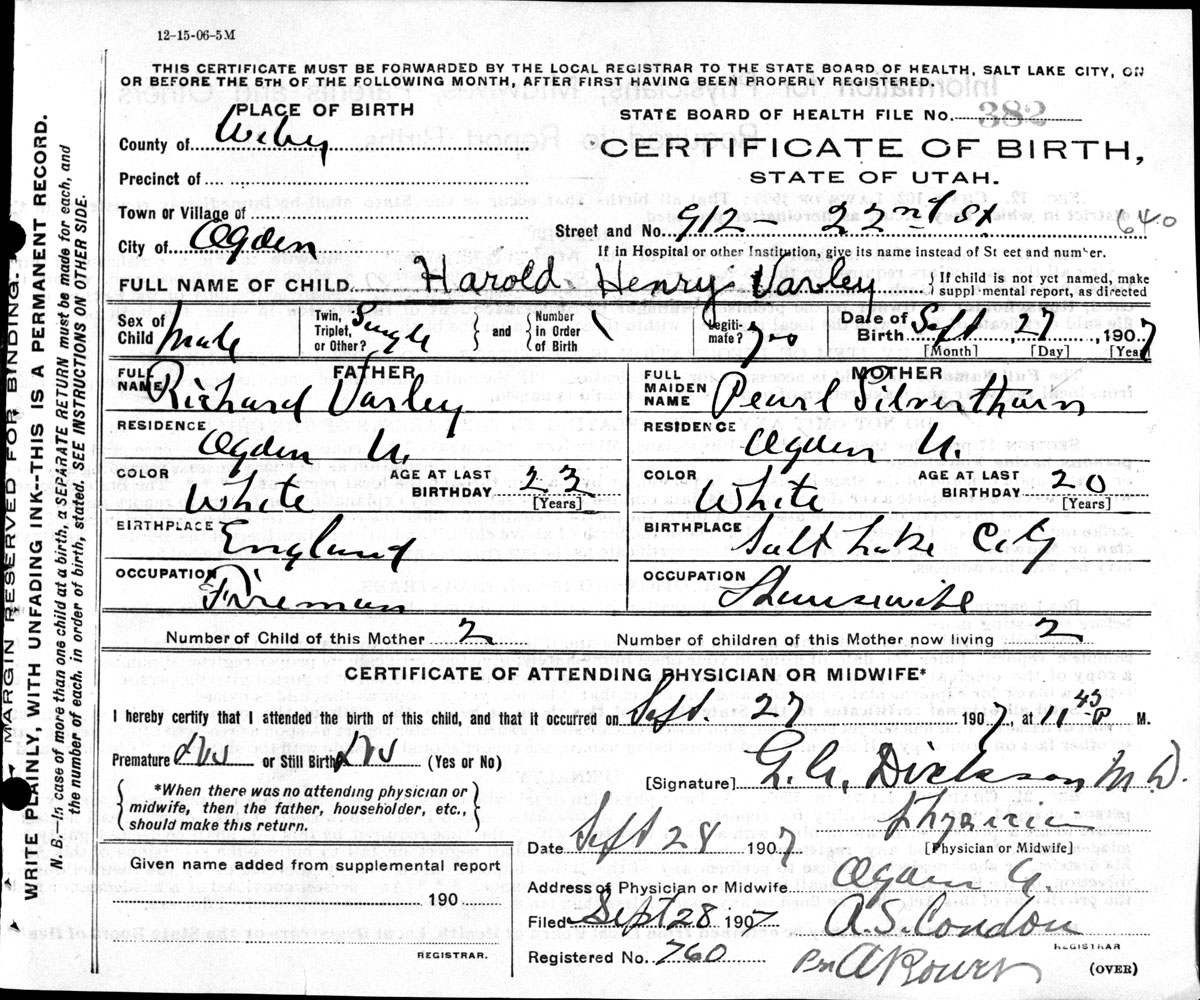 12-15-06-5M
THIS CERTIFICATE MUST BE FORWARDED BY THE LOCAL REGISTRAR TO THE STATE BOARD OF HEALTH, SALT LAKE CITY, ON
OR BEFORE THE 5TH OF THE FOLLOWING MONTH, AFTER FIRST HAVING BEEN PROPERLY REGISTERED.
PLACE OF BIRTH
STATE BOARD OF HEALTH FILE NO. 382
County of
CERTIFICATE OF BIRTH,
STATE OF UTAH.
Precinct of
Town or Village of
Street and No. 912 - 22nd St 640
City of Ogden
If in Hospital or other Institution, give its name instead of St eet and num'er.
FULL NAME OF CHILD Harold Henry Varley { If child is not yet named, make
suppl mental report, as directed
Sex of Child Male
Twin, Triplet, or Other? Single
and { Number in Order of Birth 1
Legiti- mate?
Date of Birth Sept, 27, 1907
[Month] [Day] [Year]
FATHER
FULL NAME Richard Varley
RESIDENCE Ogden U.
White
AGE AT LAST BIRTHDAY 23
[Years]
BIRTHPLACE England
OCCUPATION Fireman
MOTHER
FULL MAIDEN NAME Pearl Silverthorn
RESIDENCE Ogden U.
COLOR White
AGE AT LAST BIRTHDAY 20
[Years]
BIRTHPLACE Salt Lake
OCCUPATION Housewife
Number of Child of this Mother 2
Number of children of this Mother now living 2
CERTIFICATE OF ATTENDING PHYSICIAN OR MIDWIFE*
I hereby certify that I attended the birth of this child, and that it occurred on Sept. 27 1907, at 11 45 P M.
Premature No or Still Birth No (Yes or No)
[Signature] Dickson M D.
*When there was no attending physician or
midwife, then the father, householder, etc.,
should make this return.
[Physician or Midwife]
Date Sept 28 1907
Given name added from supplemental report
190
REGISTRAR.
Address of Physician or Midwife Ogden
Filed Sept 28 1907 A. S. Condon
REGISTRAR
Registered No. 760
(OVER)
MARGIN RESERVED FOR BINDING.
WRITE PLAINLY, WITH UNFADING INK--THIS IS A PERMANENT RECORD.
N. B.-In case of more than one child at a birth, a SEPARATE RETURN must be made for each, and
the number of each, in order of birth, stated. SEE INSTRUCTIONS ON OTHER SIDE.